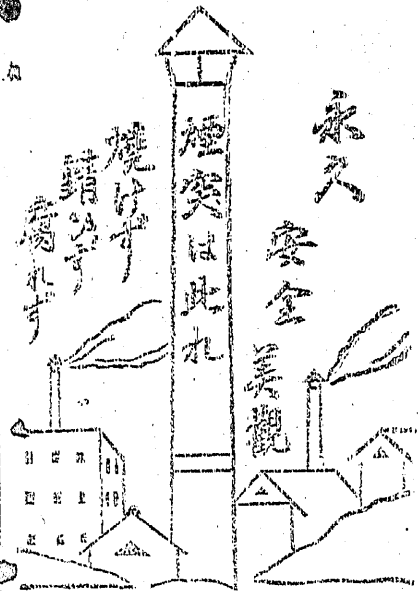 永久
安全
美観
煙突は此れ
焼けず
錆びず
腐れず